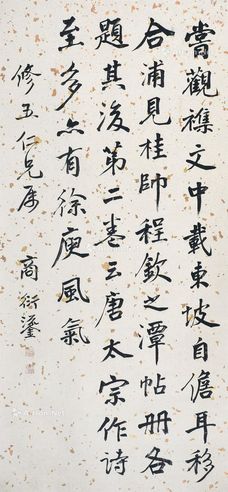 嘗觀襍文中載東坡自儋耳移
合浦見桂帥程欽之潭帖册各
題其後第二卷云唐太宗作詩
至多亦有徐庾風氣
修五仁兄属
商衍鎏